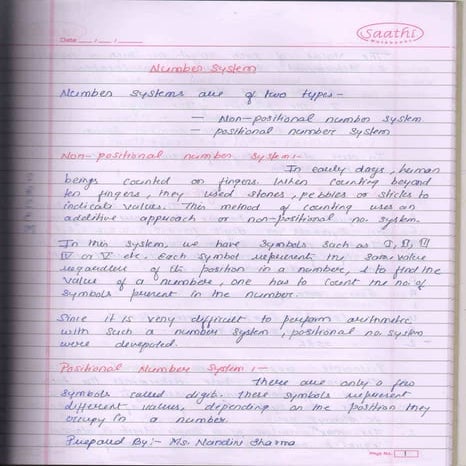 Saathi
Date / /
Number System
Number systems are of two types -
— Non-positional number system
— positional number system
Non-positional number system :-
In early days, human
beings counted on fingers. When counting beyond
ten fingers, they used stones, pebbles or sticks to
indicate values. This method of counting uses an
additive approach or non-positional no. system.
In this system, we have symbols such as I, II, III
IV or V etc. Each symbol represents the same value
regardless of its position in a number, & to find the
value of a number, one has to count the no. of
symbols present in the number.
Since it is very difficult to perform arithmetic
with such a number system, positional no. system
were developed.
Positional Number System :-
There are only a few
symbols called digits. These symbols represent
different values, depending on the position they
occupy in a number.
Prepared By:- Ms. Nandini Sharma
Page No. 1